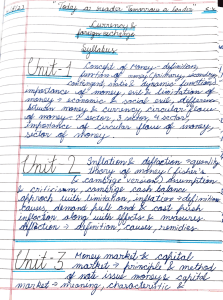 "Today a reader tomorrow a leader"
Currency &
foreign exchange
Syllabus
Unit-1 Concept of Money - definition,
function of money (primary, secondary,
contingent, static & dynamic functions)
importance of money, evil & limitation of
money → economic & social evils, difference
between money & currency, circular flow
of money → 2 sector, 3 sector, 4 sector,
Importance of circular flow of money,
sector of money
Unit-2 Inflation & deflation → quantity
theory of money (fisher's
& cambridge version) assumption
& criticism, cambridge cash balance
approach with limitation, inflation → definition
causes, demand pull & cost push
inflation along with effects & measures
deflation → definition, causes, remidies.
Unit-3 Money market & capital
market → principle & method
of note issue, money & capital
market → meaning, characteristic &